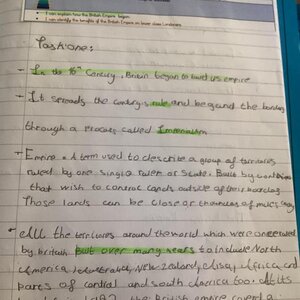 I can explain how the British Empire began
I can identify the benefits of the British Empire on lower class Londoners
Task one:
- In the 16th Century, Britain began to build its empire
- It spreads the country's rule and beyond the borders
through a process called Imperialism
- Empire = A term used to describe a group of territories
ruled by one single ruler or state. Built by countries
that wish to control lands outside of their borders
Those lands can be close or thousands of miles away
- All the territories around the world which were once ruled
by britain built over many years to include North
America, Australia, New Zealand, Asia, Africa and
parts of central and south America too. At its
the british empire